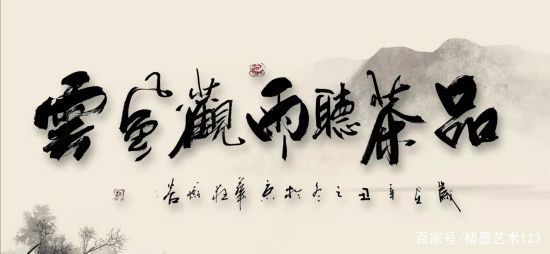 品茶聽雨觀風雲
歲在辛丑之冬於京華
百家号/楮墨艺术123